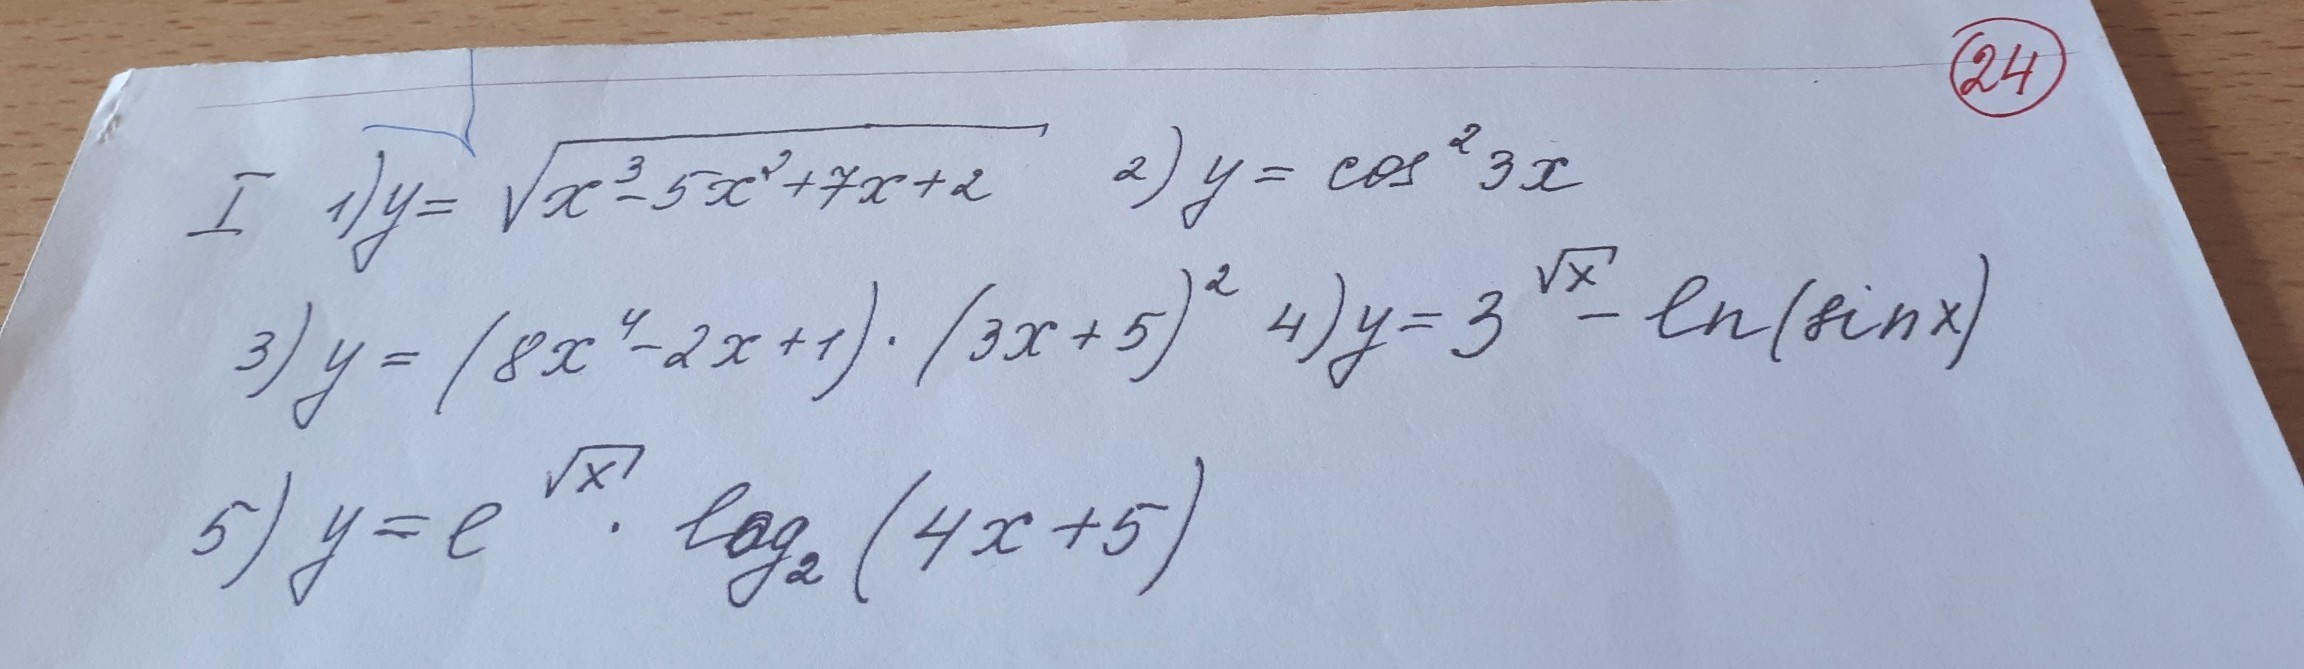 24
I 1) y = √(x³-5x²+7x+2) 2) y = cos² 3x
3) y = (8x⁴-2x+1)·(3x+5)² 4) y = 3^√x - ln(sin x)
5) y = e^√x · log₂(4x+5)